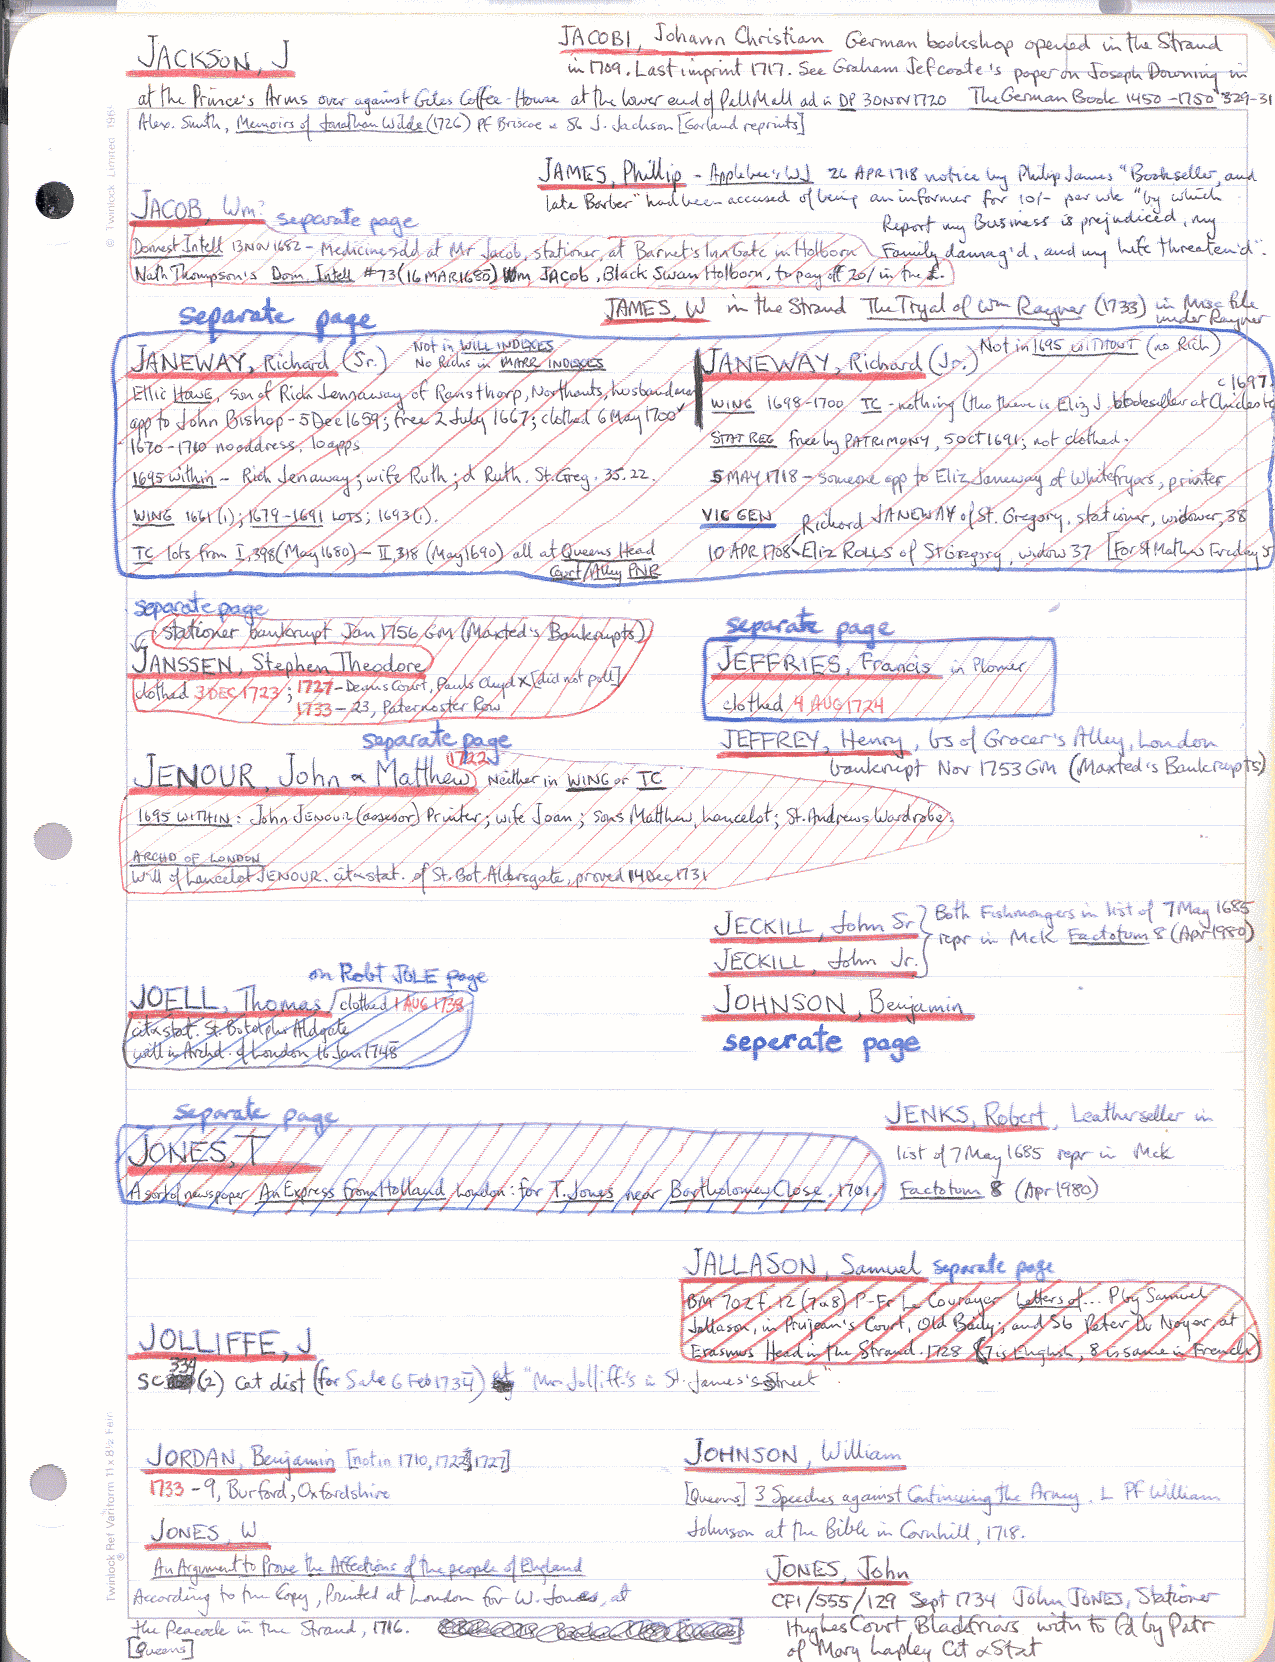 JACKSON, J
at the Prince's Arms over against Giles Coffee-House at the lower end of Pall Mall ad in DP 30 NOV 1720
Alex. Smith, Memoirs of Jonathan Wilde (1726) PF Briscoe & Sb J. Jackson [Garland reprints]
JACOBI, Johann Christian German bookshop opened in the Strand
in 1709. Last imprint 1717. See Graham Jefcoate's paper on Joseph Downing in
The German Book 1450-1750 329-31
JAMES, Phillip - Applebee's WJ 26 APR 1718 notice by Philip James "Bookseller, and
late Barber" had been accused of being an informer for 10/- per wk "by which
Report my Business is prejudiced, my
Family damag'd, and my life threaten'd".
JACOB, Wm? separate page
Domest Intell 13 NOV 1682 - Medicine sold at Mr Jacob, stationer, at Barnet's Inn Gate in Holborn
Nath Thompson's Dom. Intell #73 (16 MAR 1680) Wm JACOB, Black Swan Holborn, to pay off 20/ in the £.
JAMES, W in the Strand The Tryal of Wm Rayner (1733) in Misc file
under Rayner
separate page
JANEWAY, Richard (Sr.) Not in WILL INDEXES
No Richs in MARR INDEXES
Ellic HOWE, son of Rich Jennaway of Ransthorp, Northants, husbandman
app to John Bishop - 5 Dec 1659; free 2 July 1667; clothed 6 May 1700
1670-1710 no address, 10 apps
1695 within - Rich Jenaway; wife Ruth; d Ruth. St. Greg. 35.22.
WING 1661 (1); 1679-1691 LOTS; 1693 (1).
TC lots from I,398 (May 1680) - II,318 (May 1690) all at Queens Head
Court/Alley PNR
JANEWAY, Richard (Jr.) Not in 1695 WITHOUT (no Rich)
c1697.
WING 1698-1700 TC - nothing (tho there is Eliz J. bookseller at Chichester
STAT REG free by PATRIMONY, 5 Oct 1691; not clothed.
5 MAY 1718 - someone app to Eliz Janeway of Whitefryars, printer
VIC GEN Richard JANEWAY of St. Gregory, stationer, widower, 38
10 APR 1708 Eliz ROLLS of St Gregory, widow 37 [For St Mathew Friday St
separate page
stationer bankrupt Jan 1756 GM (Maxted's Bankrupts)
JANSSEN, Stephen Theodore
clothed 3 DEC 1723; 1727 - Deans Court, Pauls Chyd x [did not poll]
1733 - 23, Paternoster Row
separate page
JEFFRIES, Francis in Plomer
clothed 4 AUG 1724
JEFFREY, Henry, bs of Grocer's Alley, London
bankrupt Nov 1753 GM (Maxted's Bankrupts)
separate page
1722
JENOUR, John & Matthew Neither in WING or TC
1695 WITHIN: John JENOUR (assessor) Printer; wife Joan; sons Matthew, Lancelot; St. Andrews Wardrobe.
ARCHD OF LONDON
Will of Lancelot JENOUR. cit & stat. of St. Bot. Aldersgate, proved 14 Dec 1731
JECKILL, John Sr.
JECKILL, John Jr.
Both Fishmongers in list of 7 May 1685
repr in McK Factotum 8 (Apr 1980)
on Robt JOLE page
JOELL, Thomas clothed 1 AUG 1738
cit & stat. St. Botolphs Aldgate
will in Archd. of London 16 Jan 1748
JOHNSON, Benjamin
seperate page
separate page
JONES, T
A sort of newspaper An Express from Holland London: for T. Jones near Bartholomew Close. 1701.
JENKS, Robert, Leatherseller in
list of 7 May 1685 repr in McK
Factotum 8 (Apr 1980)
JALLASON, Samuel separate page
BM 702 f. 12 (7 & 8) P-Fr Le Courayer Letters of... P by Samuel
Jallason, in Prujean's Court, Old Baily; and Sb Peter Du Noyer at
Erasmus Head in the Strand. 1728 (7 is English, 8 is same in French)
JOLLIFFE, J
334
SC (2) Cat dist (for Sale 6 Feb 1734) at "Mr. Jolliff's in St. James's Street".
JORDAN, Benjamin [not in 1710, 1722, 1727]
1733 - 9, Burford, Oxfordshire
JOHNSON, William
[Queens] 3 Speeches against Continuing the Army. L PF William
Johnson at the Bible in Cornhill, 1718.
JONES, W
An Argument to Prove the Affections of the people of England
According to the Copy, Printed at London for W. Jones, at
the Peacock in the Strand, 1716.
[Queens]
JONES, John
CF1/555/129 Sept 1734 John JONES, Stationer
Hughes Court, Blackfriars with to Cd by Patr
of Mary Lapley Cit & Stat
© Twinlock Limited 196
Twinlock Ref Variform 11 x 8½ Fair